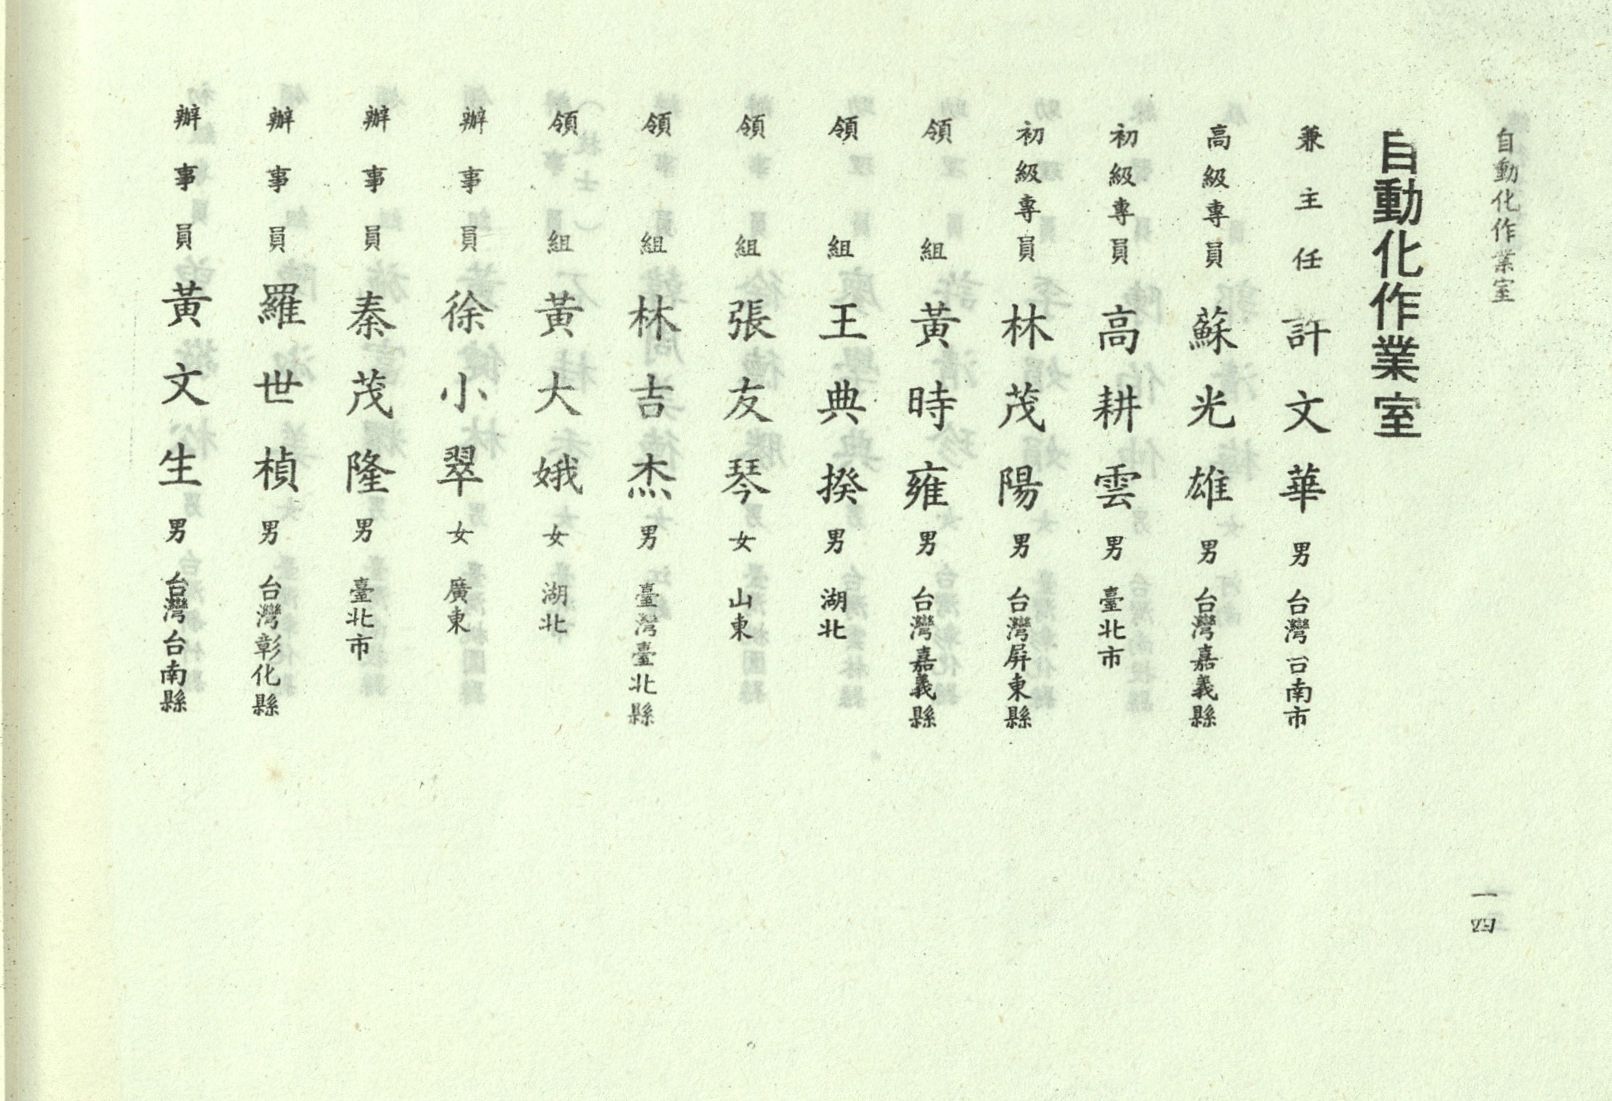 自動化作業室
一四
自動化作業室
兼主任 許文華 男 台灣台南市
高級專員 蘇光雄 男 台灣嘉義縣
初級專員 高耕雲 男 臺北市
初級專員 林茂陽 男 台灣屏東縣
領組 黃時雍 男 台灣嘉義縣
領組 王典揆 男 湖北
領組 張友琴 女 山東
領組 林吉杰 男 臺灣臺北縣
領組 黃大娥 女 湖北
辦事員 徐小翠 女 廣東
辦事員 秦茂隆 男 臺北市
辦事員 羅世楨 男 台灣彰化縣
辦事員 黃文生 男 台灣台南縣